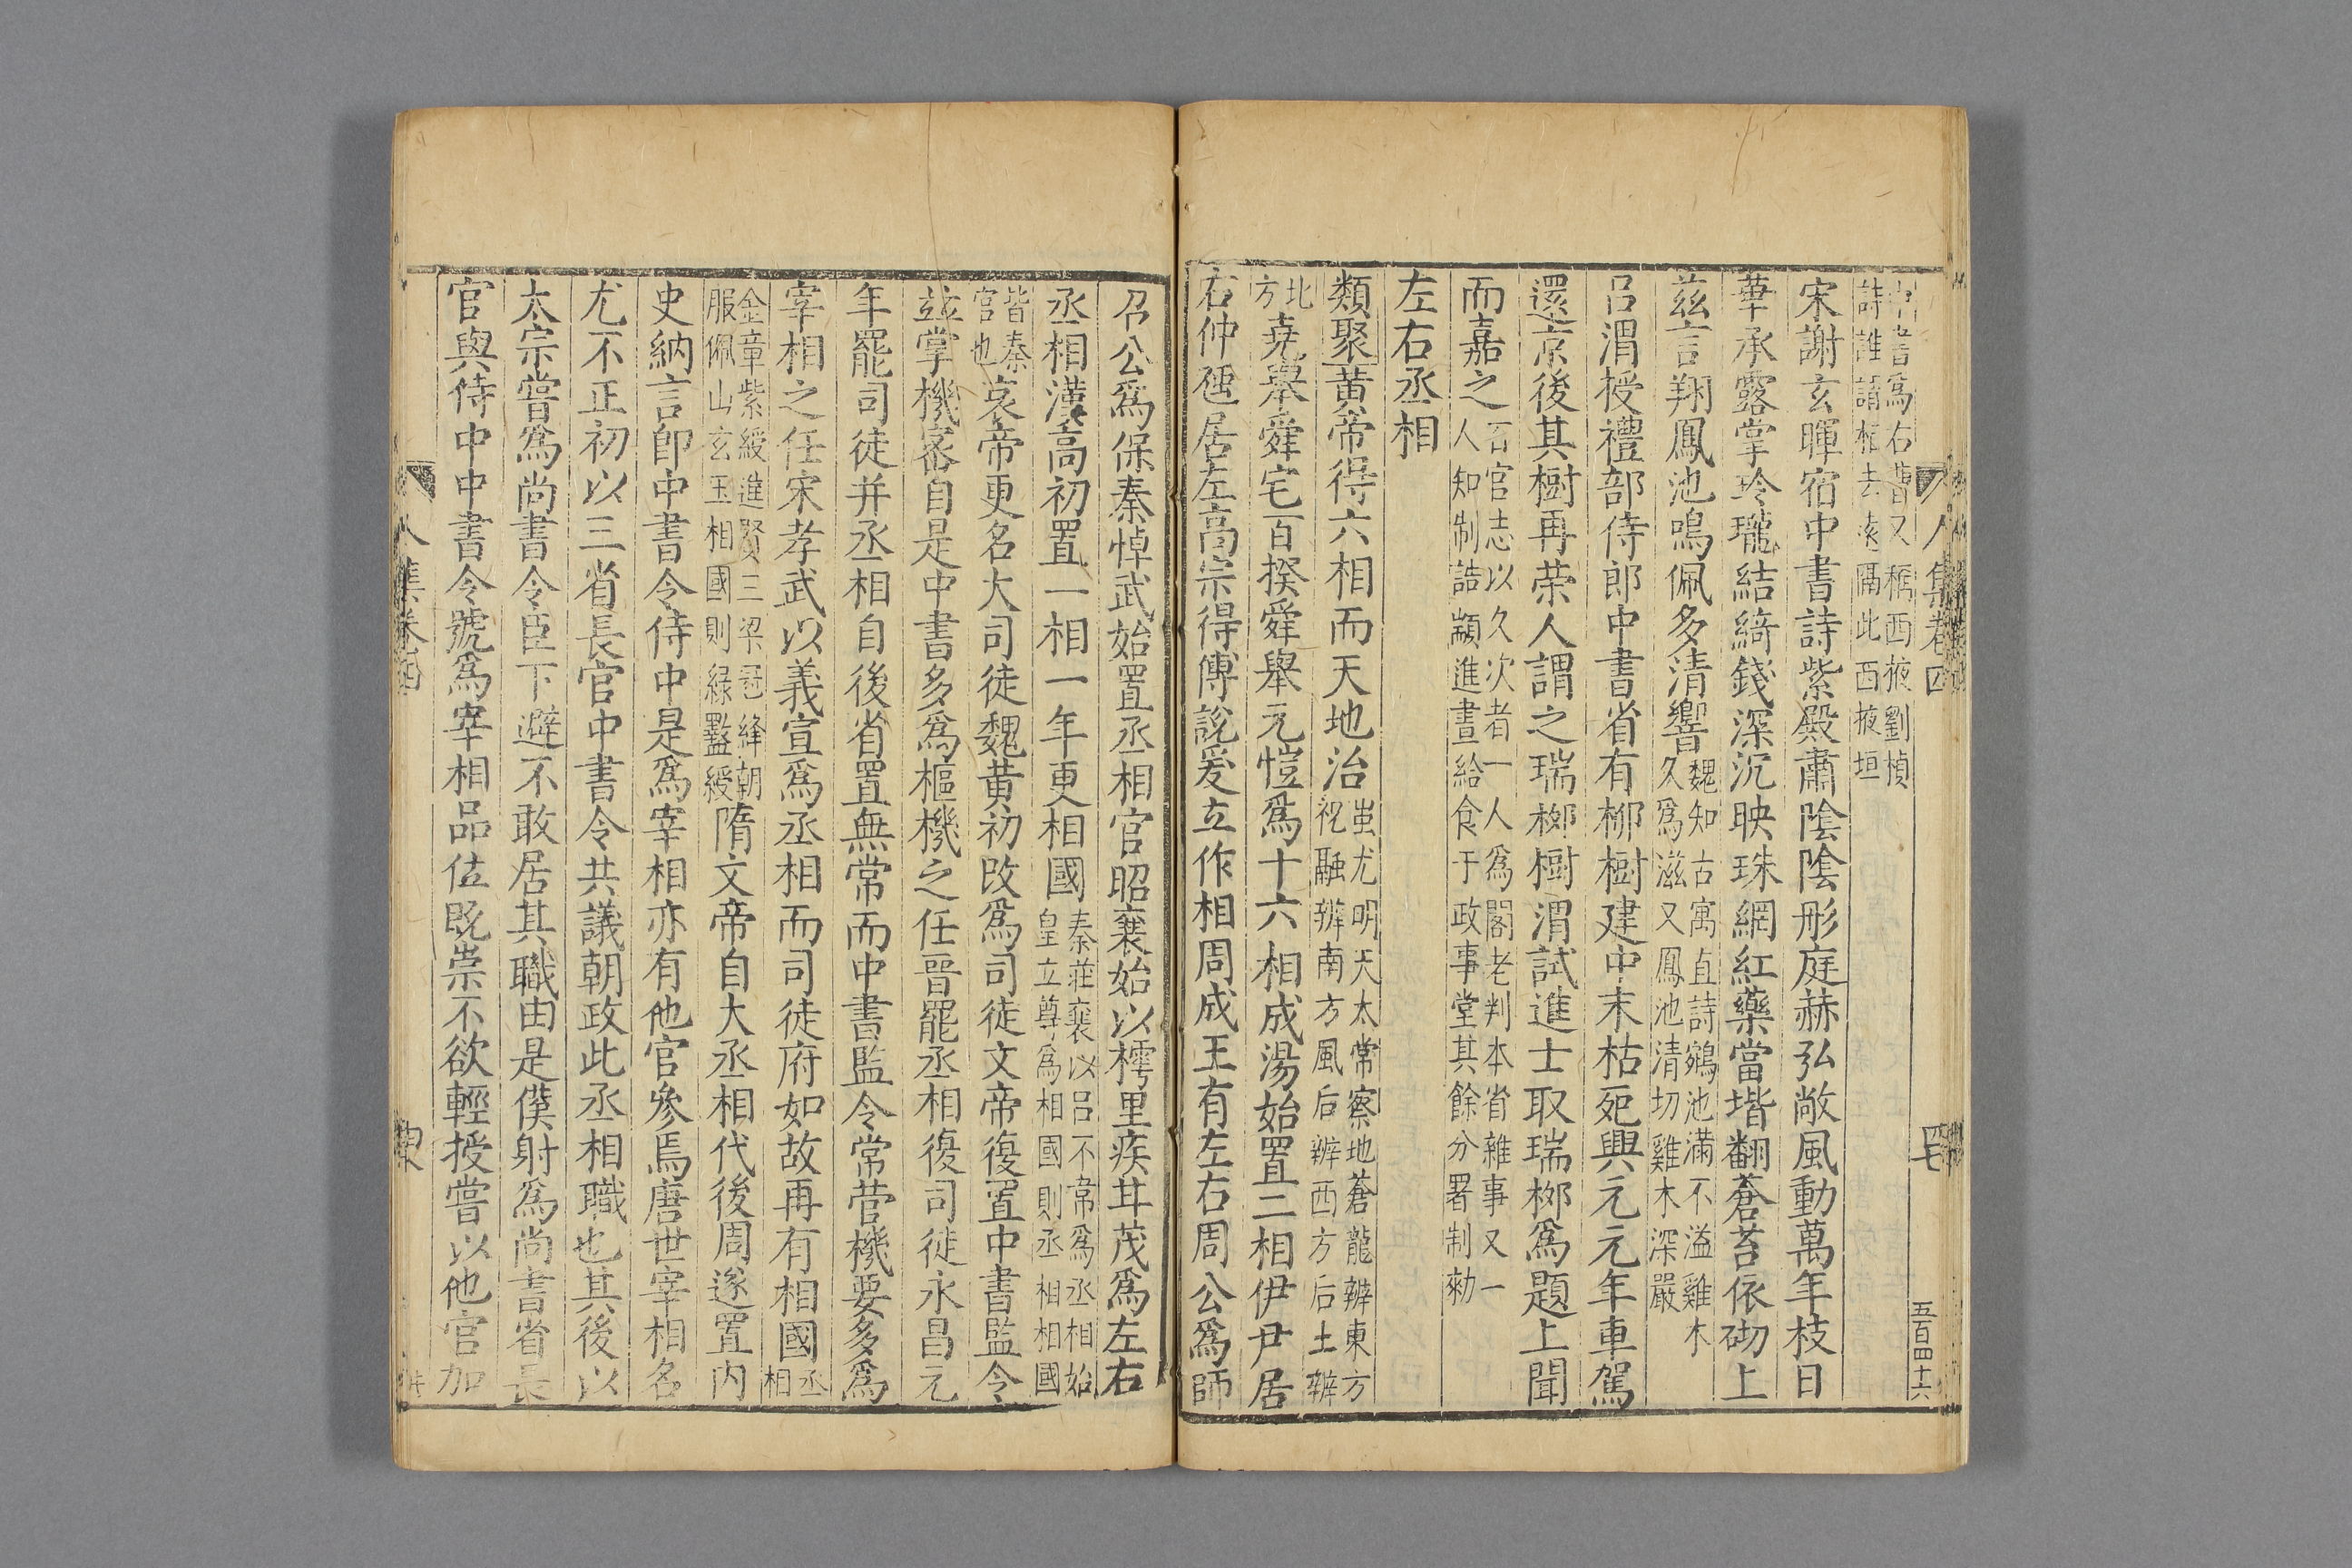 中書爲右曹又稱西掖劉楨
詩誰謂相去遠隔此西掖垣
宋謝玄暉宿中書詩紫殿肅陰陰彤庭赫弘敞風動萬年枝日
華承露掌玲瓏結綺錢深沉映珠網紅藥當堦翻蒼苔依砌上
茲言翔鳳池鳴佩多清響魏知古寓直詩鵷池滿不溢雞木
久爲滋又鳳池清切雞木深嚴
呂渭授禮部侍郎中書省有柳樹建中末枯死興元元年車駕
還京後其樹再荣人謂之瑞柳樹渭試進士取瑞柳爲題上聞
而嘉之百官志以久次者一人爲閣老判本省雜事又一
人知制誥顓進畫給食于政事堂其餘分署制勑
左右丞相
類聚黄帝得六相而天地治蚩尤明天太常察地蒼龍辨東方
祝融辨南方風后辨西方后土辨
北方堯舉舜宅百揆舜舉元愷爲十六相成湯始置二相伊尹居
右仲虺居左高宗得傅說爰立作相周成王有左右周公爲師
召公爲保秦悼武始置丞相官昭襄始以樗里疾甘茂爲左右
丞相漢高初置一相一年更相國秦莊襄以呂不韋爲丞相始
皇立尊爲相國則丞相相國
皆秦官也哀帝更名大司徒魏黄初改爲司徒文帝復置中書監令
並掌機密自是中書多爲樞機之任晉罷丞相復司徒永昌元
年罷司徒并丞相自後省置無常而中書監令常管機要多爲
宰相之任宋孝武以義宣爲丞相而司徒府如故再有相國丞相
金章紫綬進賢三梁冠絳朝
服佩山玄玉相國則綠盭綬隋文帝自大丞相代後周遂置内
史納言卽中書令侍中是爲宰相亦有他官參焉唐世宰相名
尤不正初以三省長官中書令共議朝政此丞相職也其後以
太宗嘗爲尚書令臣下避不敢居其職由是僕射爲尚書省長
官與侍中中書令號爲宰相品位旣崇不欲輕授嘗以他官加
人集卷四
五百四十六